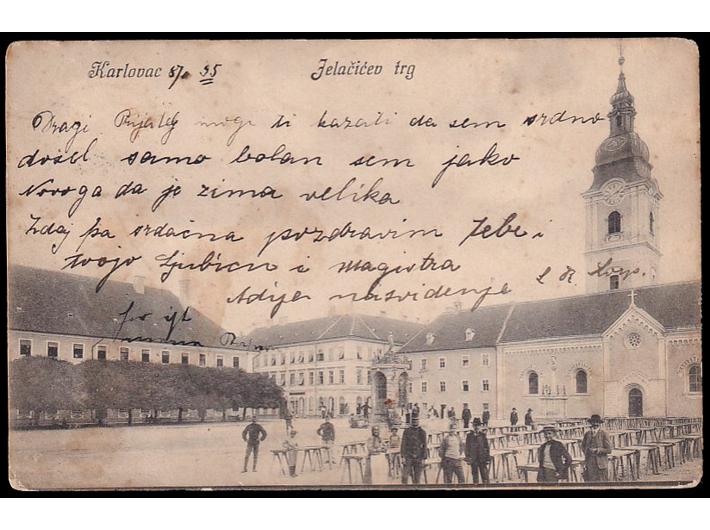 Karlovac 37. 35 Jelačićev trg
Dragi Prijatelj mogu ti kazati da sem srdno
došel samo bolan sem jako
Novoga da je zima velika
Zdaj pa srdačna pozdravim Tebe i
tvojo Ljubicu i magistra
Adije nasvidenje